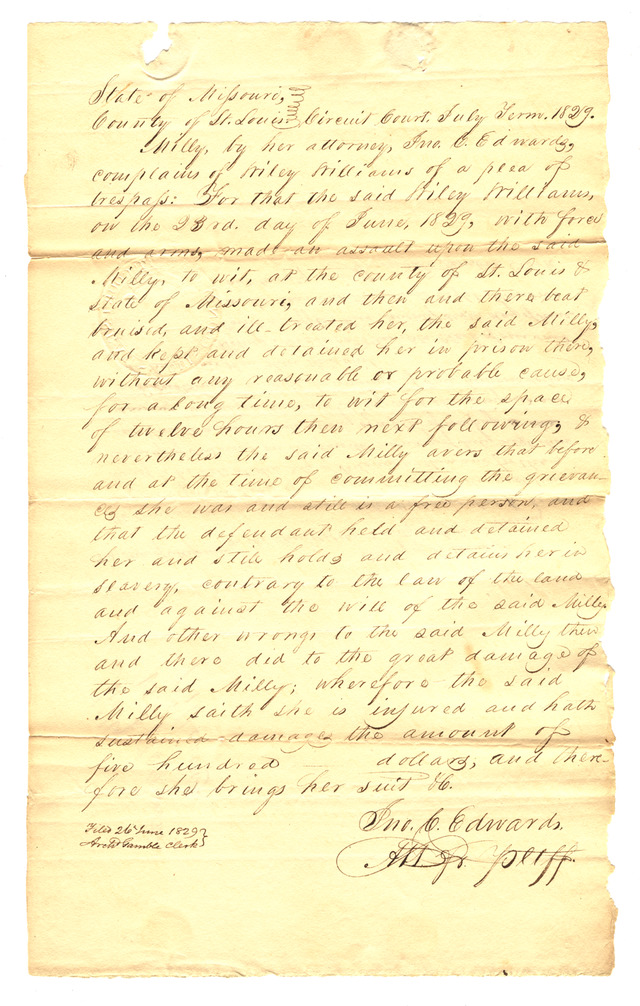 State of Missouri,
County of St. Louis Circuit Court. July Term. 1829.
Milly, by her attorney, Jno. C. Edwards,
complains of Wiley Williams of a plea of
trespass: For that the said Wiley Williams,
on the 23rd. day of June, 1829, with force
and arms, made an assault upon the said
Milly, to wit, at the county of St. Louis &
state of Missouri, and then and there beat
bruised, and ill-treated her, the said Milly,
and kept and detained her in prison there,
without any reasonable or probable cause,
for a long time, to wit for the space
of twelve hours then next following; &
nevertheless the said Milly avers that before
and at the time of committing the grievan-
ces she was and still is a free person, and
that the defendant held and detained
her and still holds and detains her in
slavery, contrary to the law of the land
and against the will of the said Milly.
And other wrongs to the said Milly then
and there did to the great damage of
the said Milly; wherefore the said
Milly saith she is injured and hath
sustained damages the amount of
five hundred dollars, and there-
fore she brings her suit &c.
Jno. C. Edwards.
Att. fr. Pltff.
Filed 26 June 1829
Archd Gamble Clerk